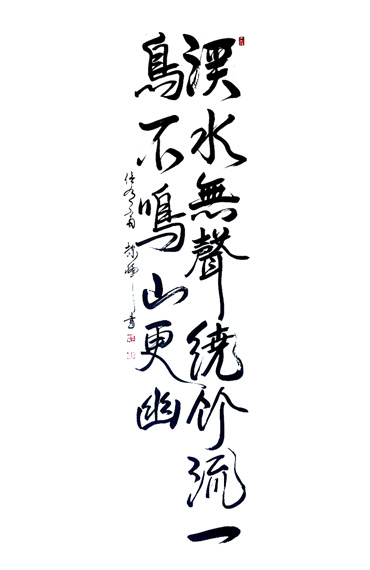 溪水無聲繞竹流一
鳥不鳴山更幽
書